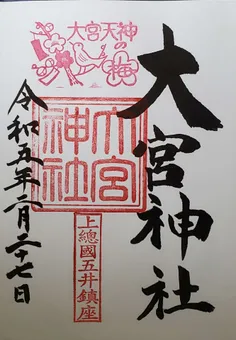 大宮天神の梅
大宮神社
大宮
神社
上總國五井鎮座
令和五年二月二十七日